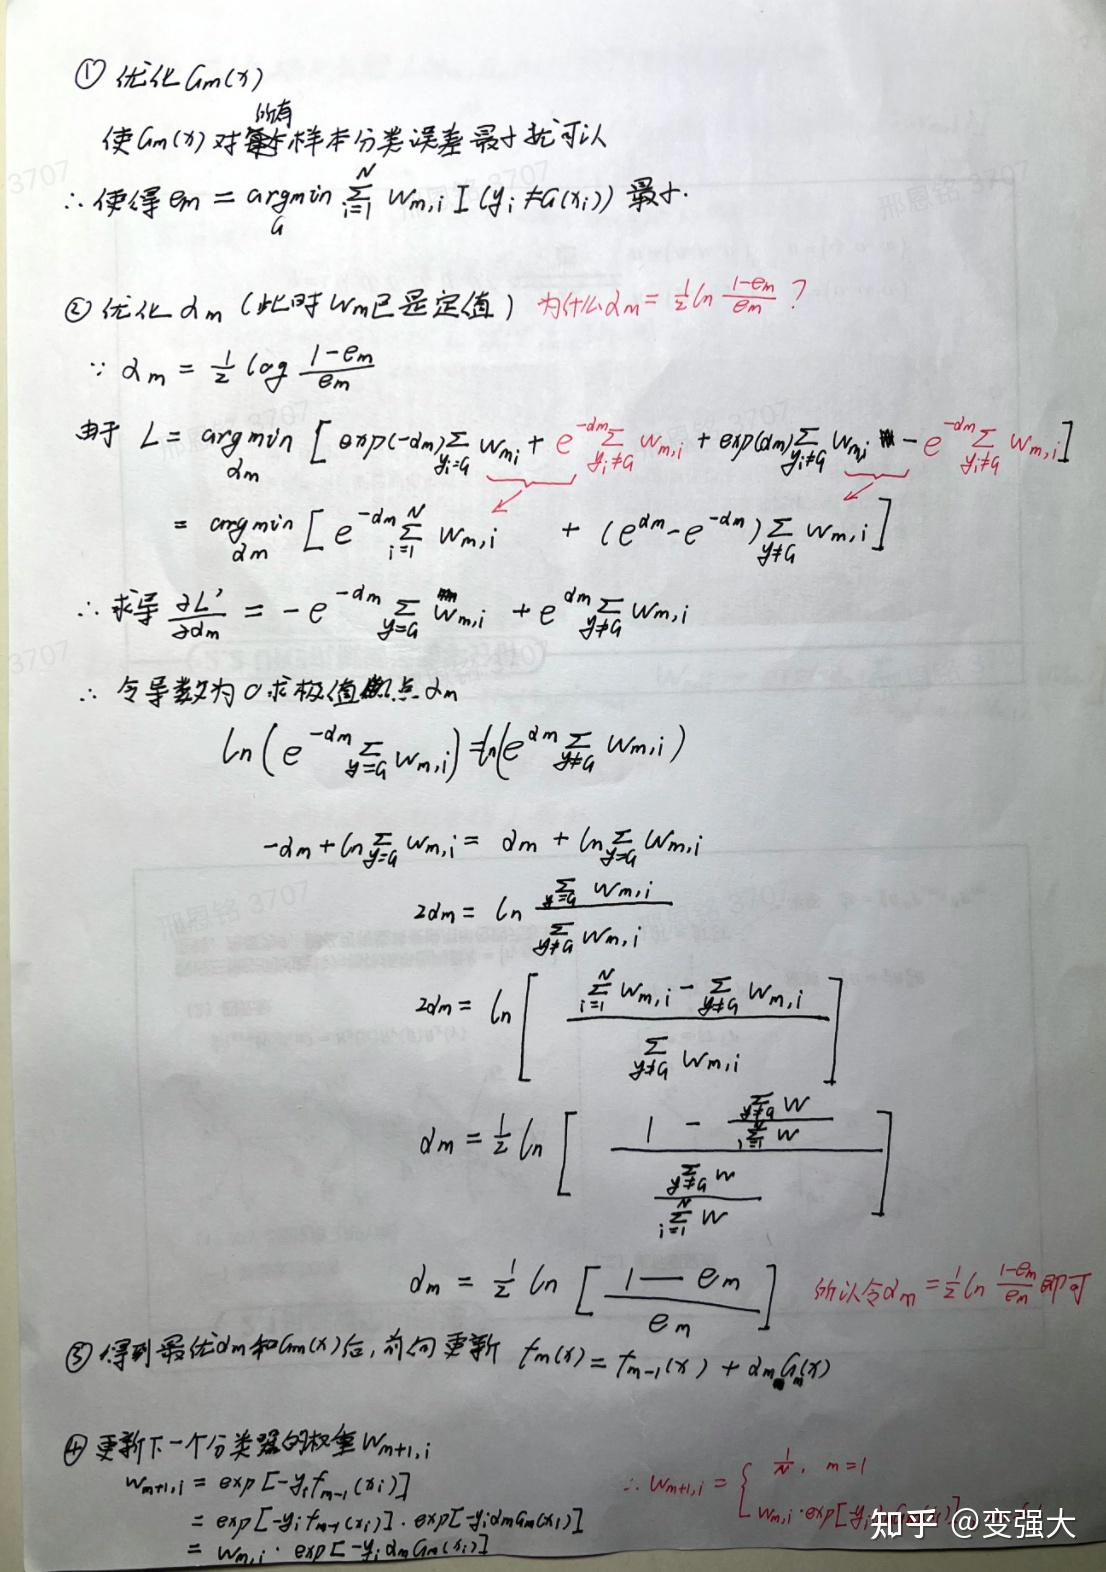 ① 优化Gm(x)
所有
使Gm(x)对样本分类误差最小就可以
∴ 使得 em = argmin_G Σ_{i=1}^{N} Wm,i I(yi≠G(xi)) 最小.
② 优化 αm (此时Wm已是定值) 为什么αm = 1/2 ln (1-em)/em ?
∵ αm = 1/2 log (1-em)/em
由于 L = argmin_{αm} [exp(-αm) Σ_{yi=G} Wm,i + e^{-αm} Σ_{yi≠G} Wm,i + exp(αm) Σ_{yi≠G} Wm,i - e^{-αm} Σ_{yi≠G} Wm,i]
= argmin_{αm} [e^{-αm} Σ_{i=1}^{N} Wm,i + (e^{αm} - e^{-αm}) Σ_{y≠G} Wm,i]
∴ 求导 ∂L'/∂αm = -e^{-αm} Σ_{y=G} Wm,i + e^{αm} Σ_{y≠G} Wm,i
∴ 令导数为0求极值点αm
ln(e^{-αm} Σ_{y=G} Wm,i) = ln(e^{αm} Σ_{y≠G} Wm,i)
-αm + ln Σ_{y=G} Wm,i = αm + ln Σ_{y≠G} Wm,i
2αm = ln (Σ_{y=G} Wm,i)/(Σ_{y≠G} Wm,i)
2αm = ln [(Σ_{i=1}^{N} Wm,i - Σ_{y≠G} Wm,i)/(Σ_{y≠G} Wm,i)]
αm = 1/2 ln [(1 - (Σ_{y≠G} W)/(Σ_{i=1}^{N} W))/((Σ_{y≠G} W)/(Σ_{i=1}^{N} W))]
αm = 1/2 ln [(1-em)/em] 所以令αm = 1/2 ln (1-em)/em 即可
③ 得到最优αm和Gm(x)后,前向更新 fm(x) = fm-1(x) + αm Gm(x)
④ 更新下一个分类器的权重Wm+1,i
Wm+1,i = exp[-yi fm-1(xi)]
= exp[-yi fm-1(xi)]·exp[-yi αm Gm(xi)]
= Wm,i · exp[-yi αm Gm(xi)]
∴ Wm+1,i = { 1/N, m=1
Wm,i·exp[-yi
知乎 @变强大
邢恩铭 3707